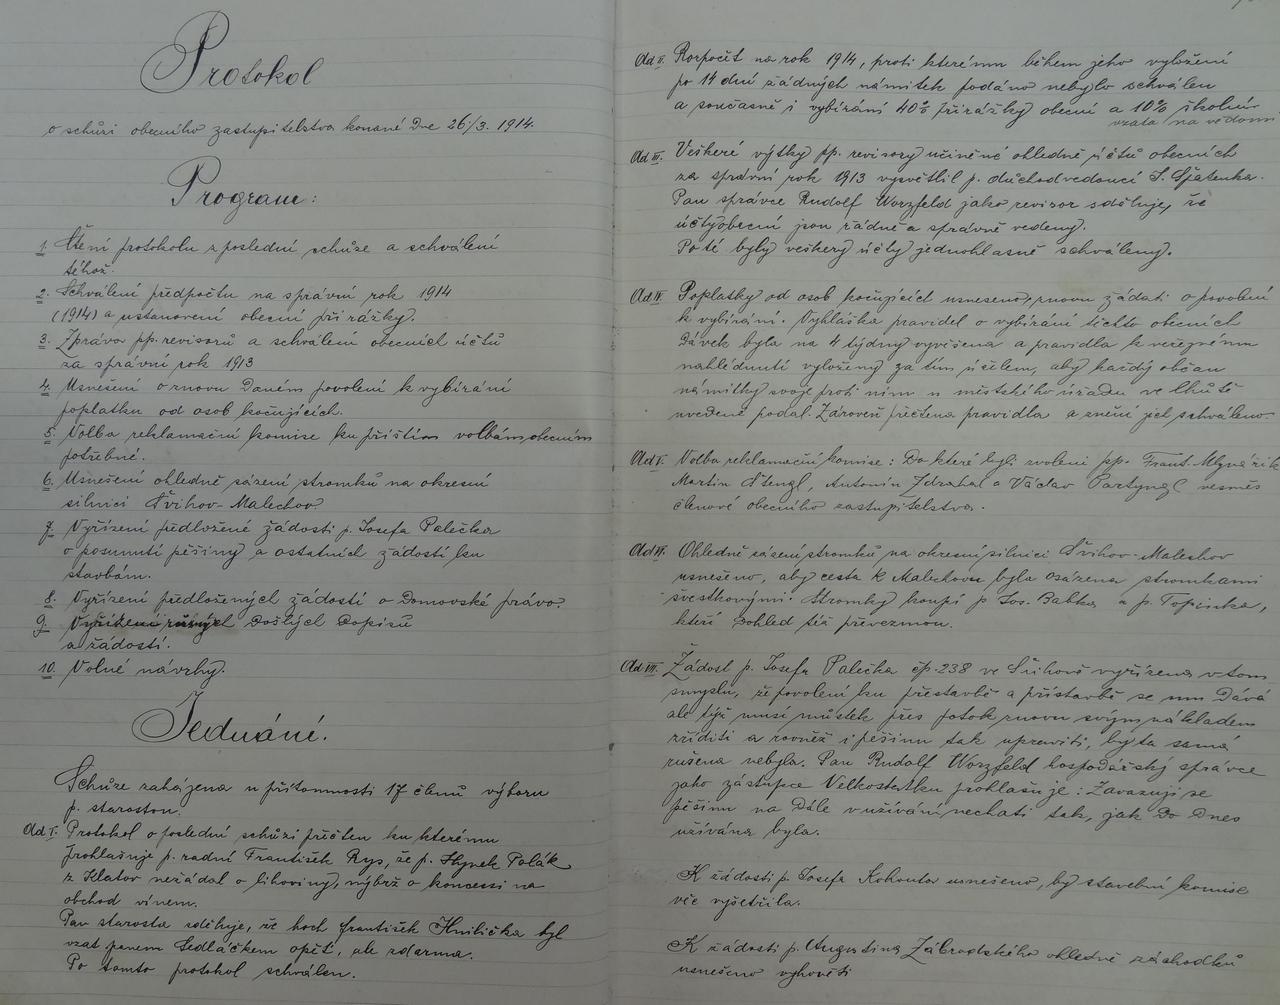 Protokol
o schůzi obecního zastupitelstva konané Dne 26/3. 1914.
Program:
1. Čtení protokolu z poslední schůze a schválení
téhož.
2. Schválení předpočtu na správní rok 1914
(1914) a ustanovení obecní přirážky.
3. Zpráva pp. revisorů a schválení obecních účtů
za správní rok 1913
4. Usnešení o znovu Daném povolení k vybírání
poplatku od osob kočujících.
5. Volba reklamační komise ku příštím volbám obecním
potřebné.
6. Usnešení ohledně sázení stromků na okresní
silnici Švihov-Malechov
7. Vyřízení předložené žádosti p. Josefa Palečka
o posunutí pěšiny a ostatních žádostí ku
stavbám.
8. Vyřízení předložených žádostí o Domovské právo.
9. Vyřízení různých Došlých Dopisů
a žádostí.
10. Volné návrhy.
Jednání.
Schůze zahájena u přítomnosti 17 členů výboru
p. starostou.
Ad I. Protokol o poslední schůzi přečten ku kterému
prohlašuje p. radní František Rys, že p. Hynek Polák
z Klatov nežádal o lihoviny, nýbrž o koncessi na
obchod vínem.
Pan starosta sděluje, že hoch František Hnilička byl
vzat panem Sedláčkem opět, ale zdarma.
Po tomto protokol schválen.
Ad II. Rozpočet na rok 1914, proti kterému během jeho vyložení
po 14 dní žádných námitek podáno nebylo schválen
a současně i vybírání 40% přirážky obecní a 10% školní
vzata na vědomí
Ad III. Veškeré výtky pp. revisory učiněné ohledně účtů obecních
za správní rok 1913 vysvětlil p. důchodvedoucí J. Šjatenka.
Pan správce Rudolf Worzfeld jako revisor sděluje, že
účty obecní jsou řádně a správně vedeny.
Po té byly veškery účty jednohlasně schváleny.
Ad IV. Poplatky od osob kočujících usneseno, znovu žádati o povolení
k vybírání. Vyhláška pravidel o vybírání těchto obecních
Dávek byla na 4 týdny vyvěšena a pravidla k veřejnému
nahlédnutí vyloženy za tím účelem, aby každý občan
námitky svoje proti nim u městského úřadu ve lhůtě
uvedené podal. Zároveň přečtena pravidla a znění jich schváleno.
Ad V. Volba reklamační komise: Do které byli zvoleni pp. Frant. Mlynařík
Martin Stengl, Antonín Zdrahal a Václav Partyngl vesměs
členové obecního zastupitelstva.
Ad VI. Ohledně sázení stromků na okresní silnici Švihov-Malechov
usneseno, aby cesta k Malechovu byla osázena stromkami
švestkovými. Stromky koupí p Jos. Babka a p. Topinka,
kteří Dohled též převezmou.
Ad VII. Žádost p. Josefa Palečka čp. 238 ve Švihově vyřízena v tom
smyslu, že povolení ku přestavbě a přístavbě se mu Dává
ale týž musí můstek přes potok znovu svým nákladem
zříditi a rovněž i pěšinu tak upraviti, by ta samá
rušena nebyla. Pan Rudolf Worzfeld hospodářský správce
jako zástupce Velkostatku prohlašuje: Zavazuji se
pěšinu na Dále v užívání nechati tak, jak Do Dnes
užívána byla.
K žádosti p. Josefa Kohouta usnešeno, by stavební komise
věc vyšetřila.
K žádosti p. Augustina Zábrodského ohledně záchodků
usnešeno vyhověti